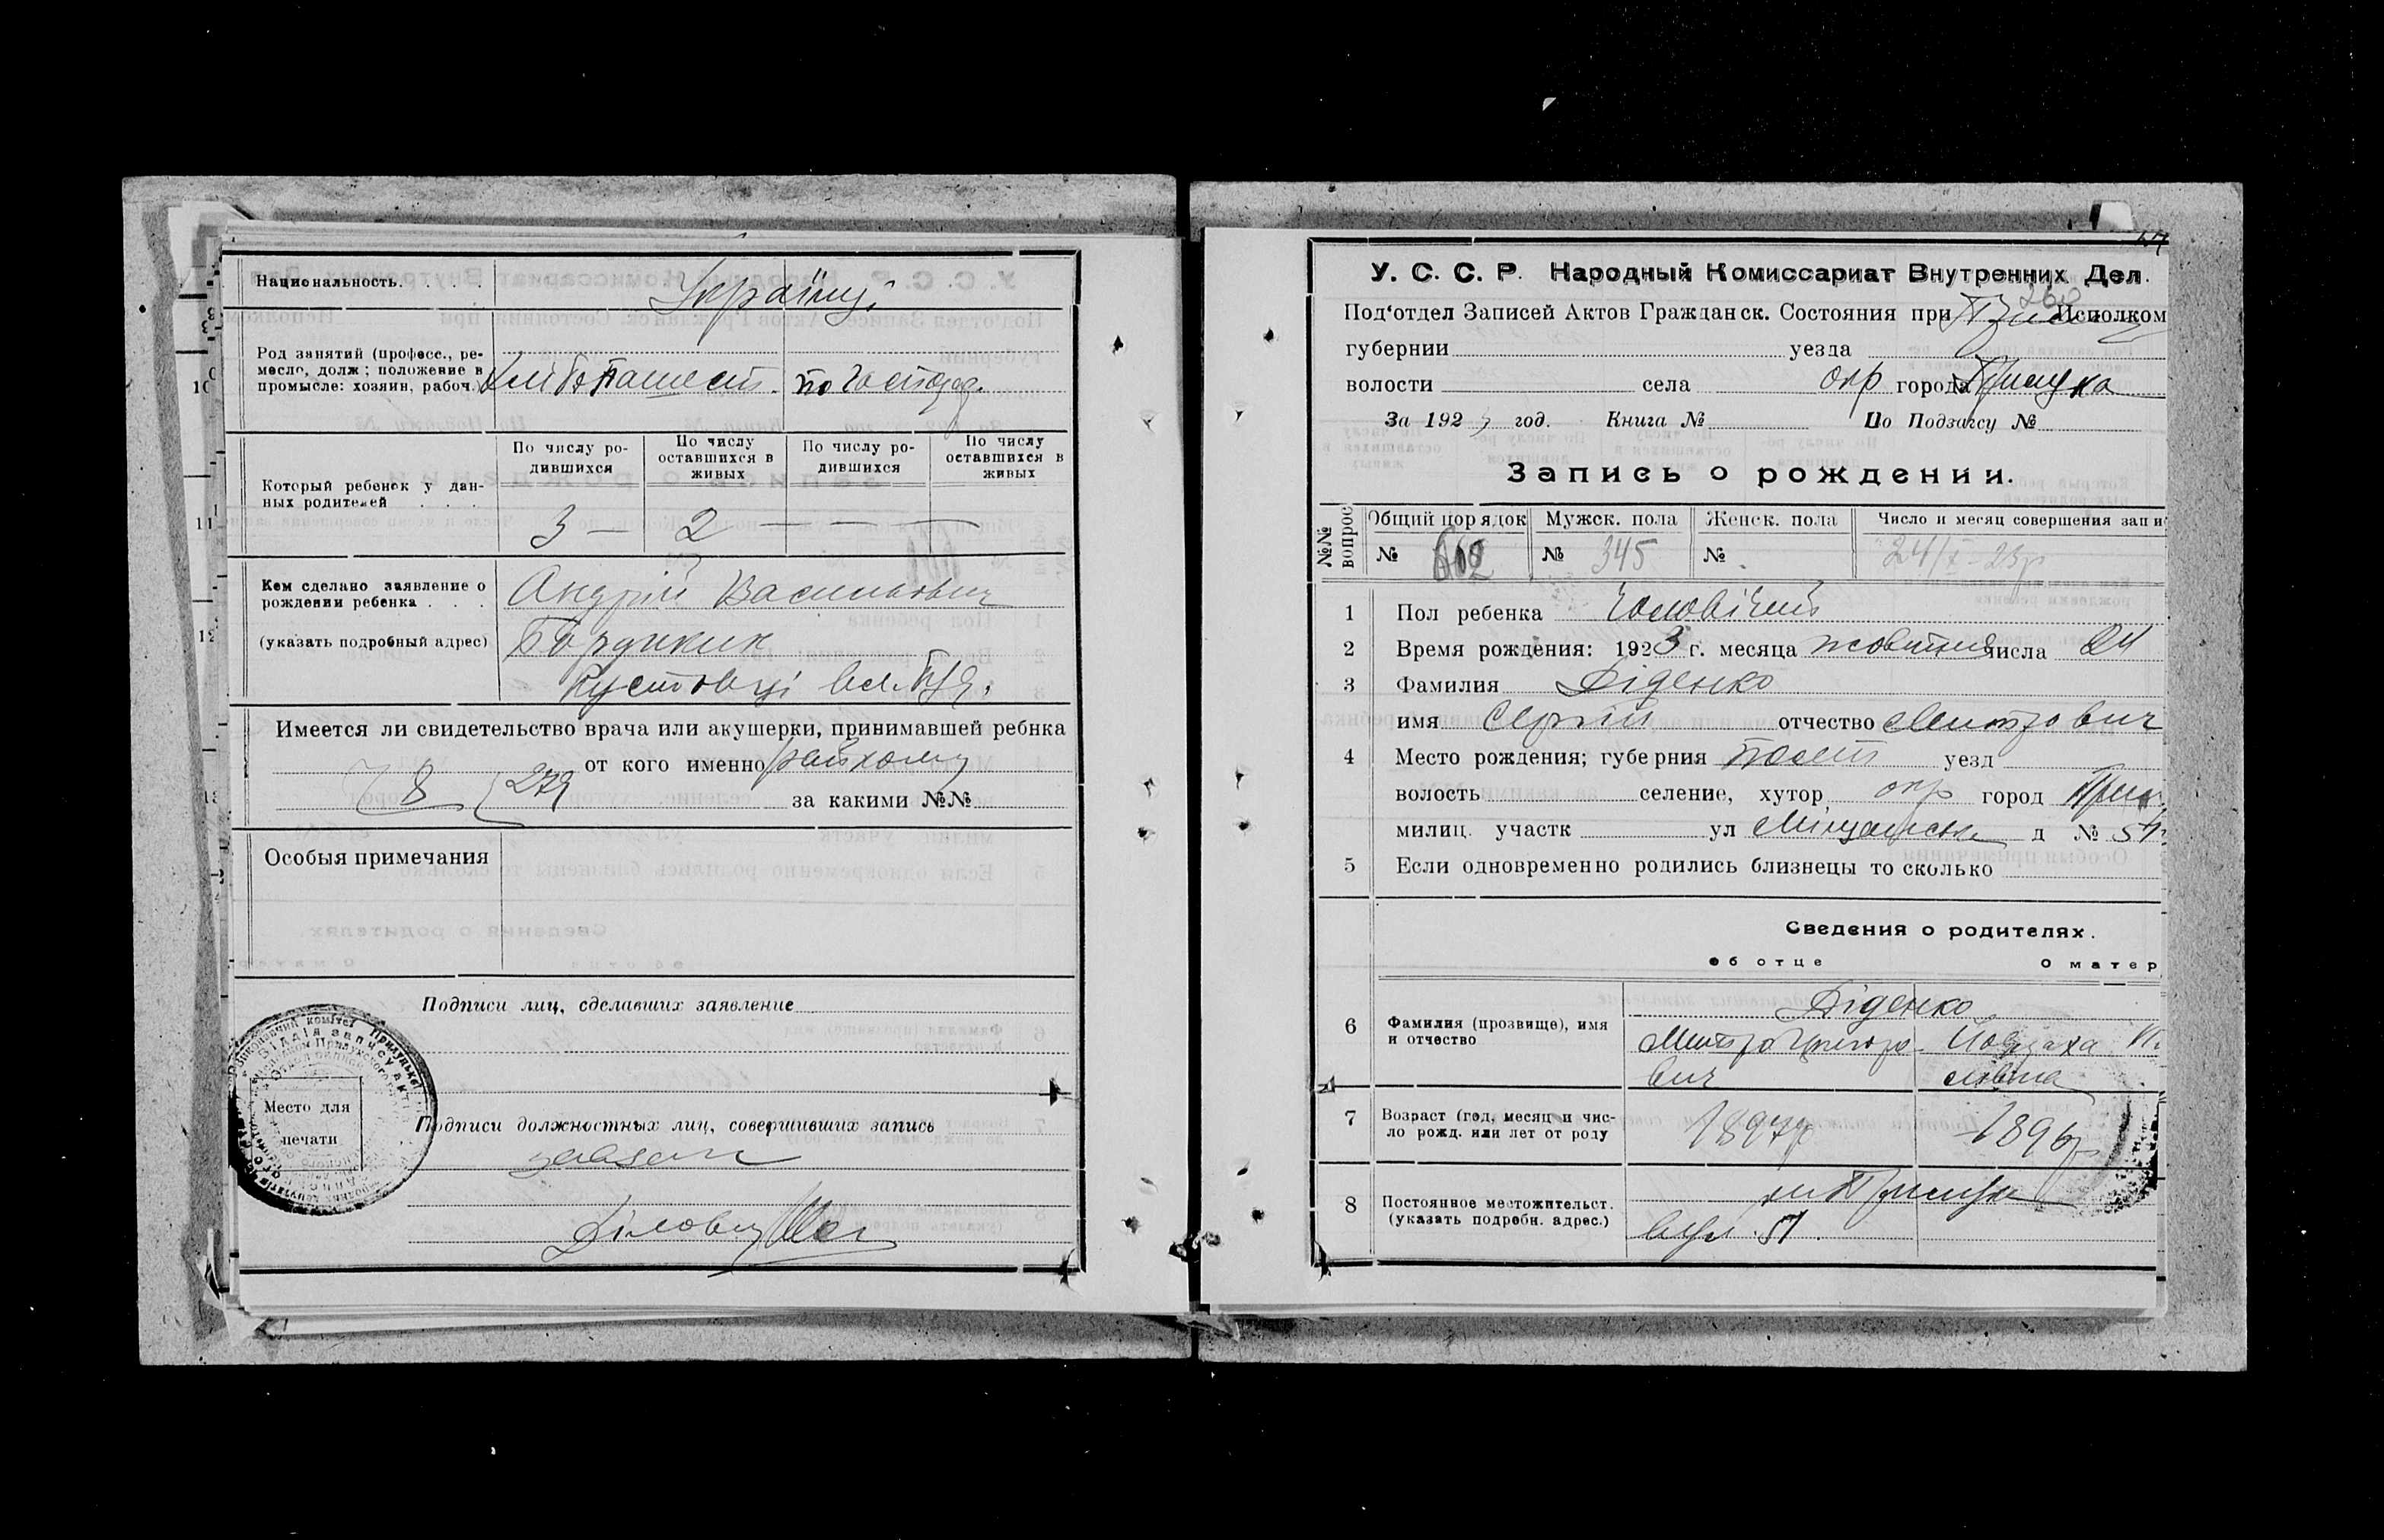 Национальность. . . . . Українці
Род занятий (професс., ре-
месло, долж; положение в
промысле: хозяин, рабоч.) Хлібопашест. по господ.
Который ребенок у дан-
ных родителей . . .
По числу ро-
дившихся
По числу
оставшихся в
живых
По числу ро-
дившихся
По числу
оставшихся в
живых
3 — 2 — — —
Кем сделано заявление о
рождении ребенка . . . Андрій Васильович
(указать подробный адрес)
Кустовці вел.
Имеется ли свидетельство врача или акушерки, принимавшей ребнка
от кого именно
8 279 за какими №№
Особыя примечания
Подписи лиц, сделавших заявление
Место для
печати
Подписи должностных лиц, совершивших запись
Завзаги
Діловод
У. С. С. Р. Народный Комиссариат Внутренних Дел.
260
Под'отдел Записей Актов Гражданск. Состояния при Исполком
губернии уезда
волости села окр города Прилука
За 1923 год. Книга № По Подзагсу №
Запись о рождении.
№№
вопрос
Общий порядок
Мужск. пола
Женск. пола
Число и месяц совершения запи
№ 602 № 345 № 24/X-23р
1 Пол ребенка Чоловічий
2 Время рождения: 1923 г. месяца жовтня числа 24
3 Фамилия Діденко
имя Сергій отчество Митрович
4 Место рождения; губерния Полт уезд
волость селение, хутор, окр город Прил.
милиц. участк ул Міщанська д № 51.
5 Если одновременно родились близнецы то сколько
Сведения о родителях.
об отце О матер
6 Фамилия (прозвище), имя
и отчество
Діденко
Митро Григоро-
вич
Йовдоха
7 Возраст (год, месяц и чис-
ло рожд. или лет от роду
1897р 1896р
8 Постоянное местожительст.
(указать подробн. адрес.)
м Прилука
вул. 51.